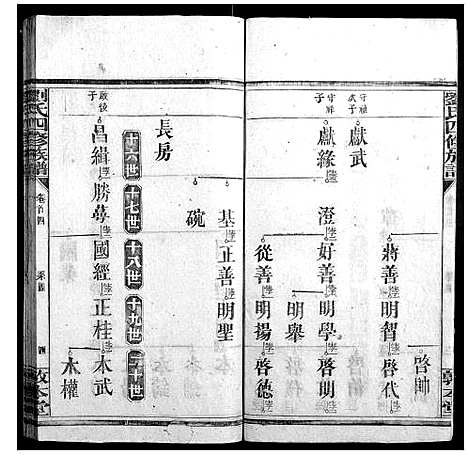 劉氏四修族譜
敦本堂
啓帥
蔣善 明智 啓代
守福武子 獻武
守祥子 獻緣 澄 好善 明學 啓明
明舉
從善 明揚 啓德
基 正善 明聖
碗
長房
十六世 十七世 十八世 十九世 二十世
啟後子 昌緝 勝夢 國經 正桂 木武
木權
劉氏四修族譜
卷首四
四
敦本堂